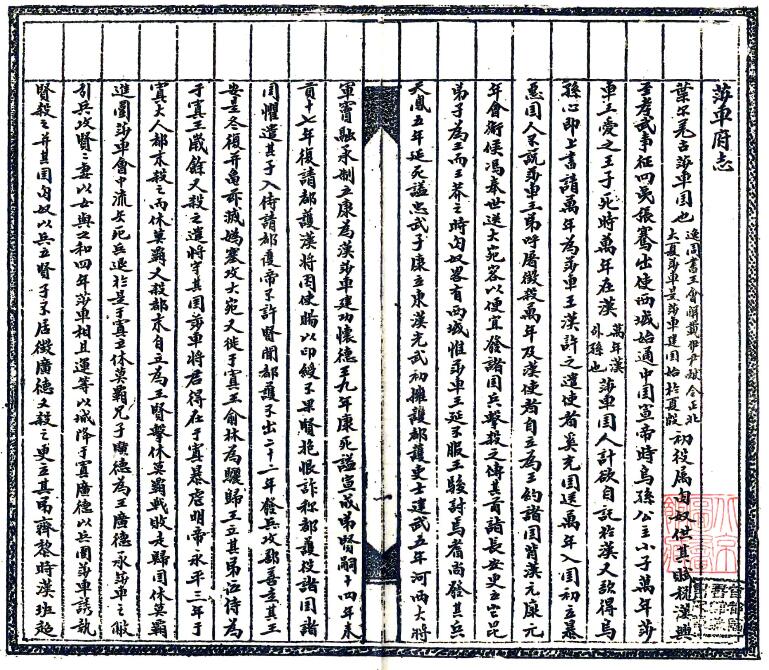 莎車府志
葉尔羌古莎車国也
逸周書王會解載伊尹献令正北
大夏莎車是莎車建国始於夏殷
初役属匈奴供其賦税漢興
至孝武事征四夷張騫出使西域始通中国宣帝時烏孫公主小子萬年莎
車王愛之王子死時萬年在漢
萬年漢
外孫也
莎車国人計欲自託於漢又欲得烏
孫心即上書請萬年為莎車王漢許之遣使者奚充国送萬年入国初立暴
惡国人不説莎車王弟呼屠徵殺萬年及漢使者自立為王約諸国背漢元康元
年會衛侯馮奉世送大宛客以便宜發諸国兵擊殺之傳其首諸長安更立它昆
弟子為王而王莽之時匈奴畧有西域惟莎車王延不服王駿討焉耆尚發其兵
天凰五年延死謚忠武子康立東漢光武初擁護都護吏士建武五年河西大將
一
軍竇融承制立康為漢莎車建功懷德王九年康死謚宣成弟賢嗣十四年來
貢十七年復請都護漢將因使賜以印綬不果賢抱恨詐称都護役諸国諸
国懼遣其子入侍請都護帝不許賢聞都護不出二十二年發兵攻鄯善走其王
安是冬復并龜茲滅媯塞攻大宛又徙于寘王俞林為驪歸王立其弟位侍為
于寘王歲餘又殺之遣將守其国莎車將君得在于寘暴虐明帝永平三年于
寘大人都末殺之而休莫霸又殺都末自立為王賢擊休莫霸戰敗走歸国休莫霸
進圍莎車會中流矢死兵退於是于寘立休莫霸兄子廣德為王廣德承莎車之敝
引兵攻賢賢妻以女與之和四年莎車相且運等以城降于寘廣德以兵圍莎車誘執
賢殺之并其国匈奴以兵立賢子不居徵廣德又殺之更立其弟齊黎時漢班超